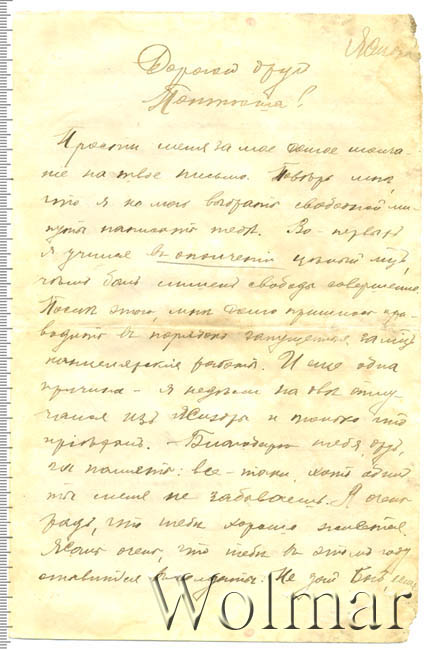 Дорогой друг
Прости меня за мое долгое молча-
ніе на твое письмо. Повѣрь мнѣ,
что я не могъ выбрать свободной ми-
нуты написать тебѣ. Во-первыхъ
я учился въ ополченіи цѣлый мѣс
чѣмъ былъ лишенъ свободы совершенно.
Послѣ этого, мнѣ долго пришлось при-
водить въ порядокъ запущенныя за мѣс
канцелярскія работы. И еще одна
причина - я недѣли на двѣ отлу-
чался изъ и только что
пріѣхалъ. - Благодарю тебя, другъ,
за память: все-таки, хоть одинъ
ты меня не забываешь. Я очень
радъ, что тебѣ хорошо живется.
Жаль очень, что тебѣ въ этомъ году
въ солдаты. Не дай Богъ, если
Wolmar